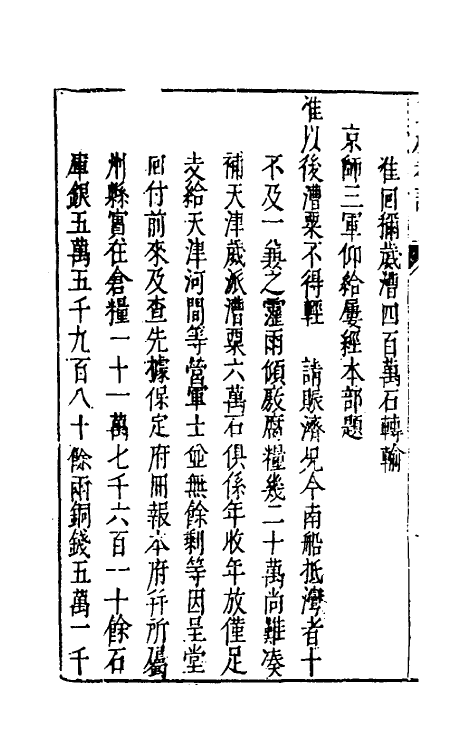 准回稱歲漕四百萬石轉輸
京師三軍仰給屢經本部題
准以後漕粟不得輕　請賑濟况今南船抵灣者十
不及一兼之霪雨傾厫腐糧幾二十萬尚難凑
補天津歲派漕粟六萬石俱係年收年放僅足
支給天津河間等營軍士並無餘剩等因呈堂
回付前來及查先據保定府冊報本府并所屬
州縣實在倉糧一十一萬七千六百一十餘石
庫銀五萬五千九百八十餘兩銅錢五萬一千